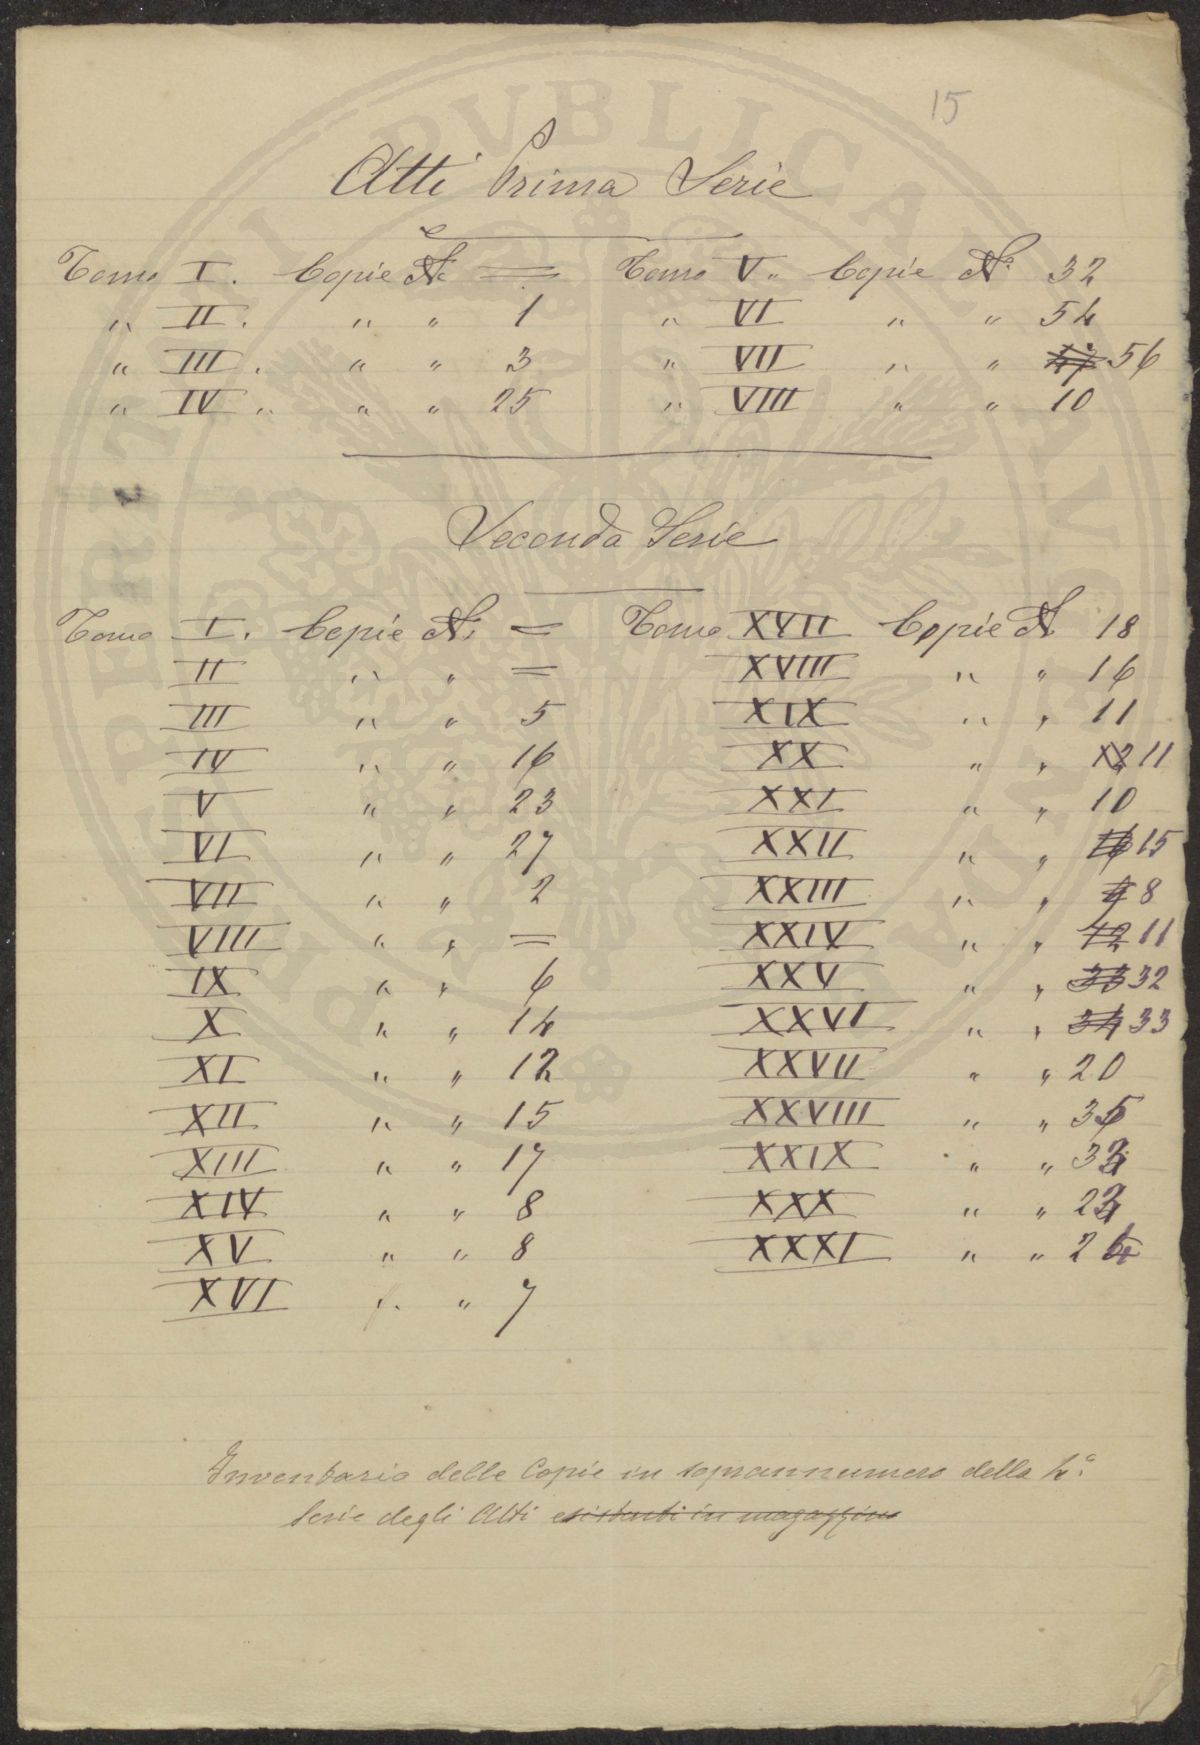 15
Atti Prima Serie
Tomo I. Copie N. = Tomo V. Copie N.º 32
" II. " " 1 " VI " " 54
" III. " " 3 " VII " " 56
" IV. " " 25 " VIII " " 10
Seconda Serie
Tomo I. Copie N. = Tomo XVII Copie N. 18
II " " = XVIII " " 16
III " " 5 XIX " " 11
IV " " 16 XX " " 12 11
V " " 23 XXI " " 10
VI " " 27 XXII " " 16 15
VII " " 2 XXIII " " 9 8
VIII " " = XXIV " " 12 11
IX " " 6 XXV " " 33 32
X " " 14 XXVI " " 34 33
XI " " 12 XXVII " " 20
XII " " 15 XXVIII " " 35
XIII " " 17 XXIX " " 33
XIV " " 8 XXX " " 23
XV " " 8 XXXI " " 24
XVI " " 7
Inventario delle Copie in soprannumero della 4ª
Serie degli Atti esistenti in magazzino